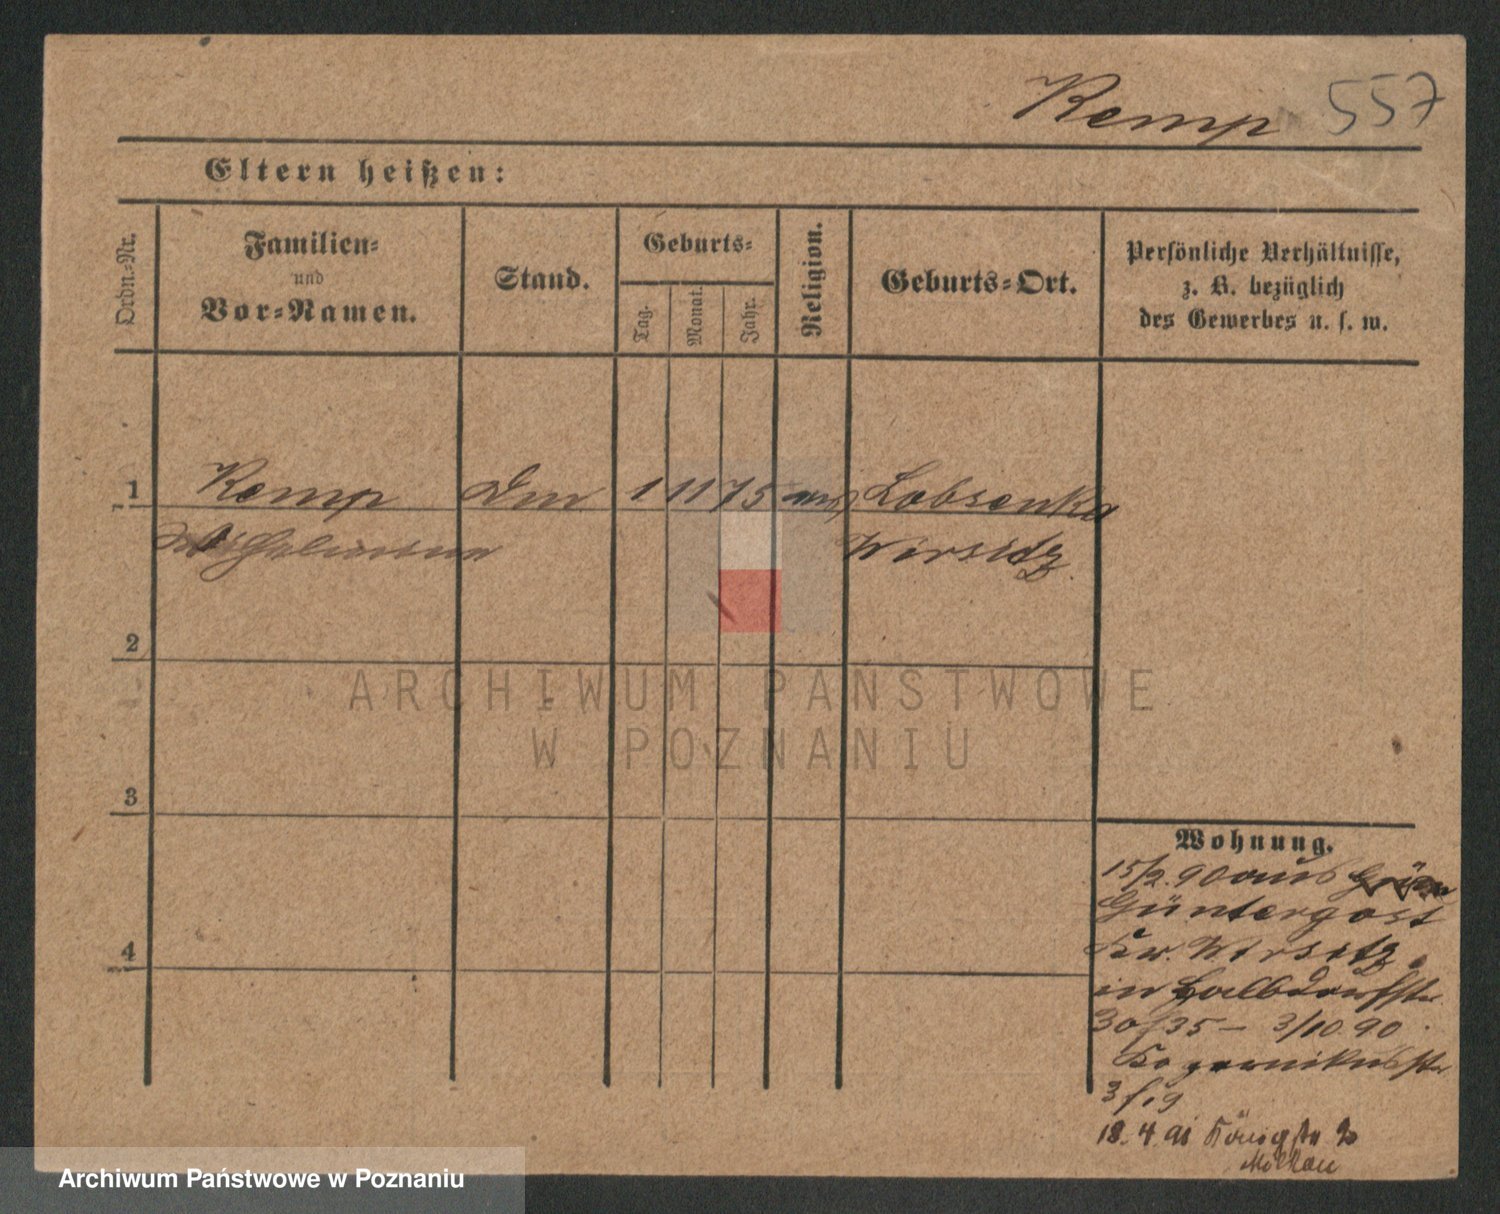 Kemp 557
Eltern heißen:
Ordn.-Nr.
Familien-
und
Vor-Namen.
Stand.
Geburts-
Tag.
Monat.
Jahr.
Religion.
Geburts-Ort.
Persönliche Verhältnisse,
z. B. bezüglich
des Gewerbes u. s. w.
1 Kemp 1 11 75 Lobsenka
Wilhelmine Wirsitz
2
ARCHIWUM PAŃSTWOWE
W POZNANIU
3
4
Wohnung.
15/2. 90 aus
Güntergost
Kr. Wirsitz
in Halbdorfstr
30/35 – 3/10 90
3/19
18. 4. 91 Königstr
Archiwum Państwowe w Poznaniu